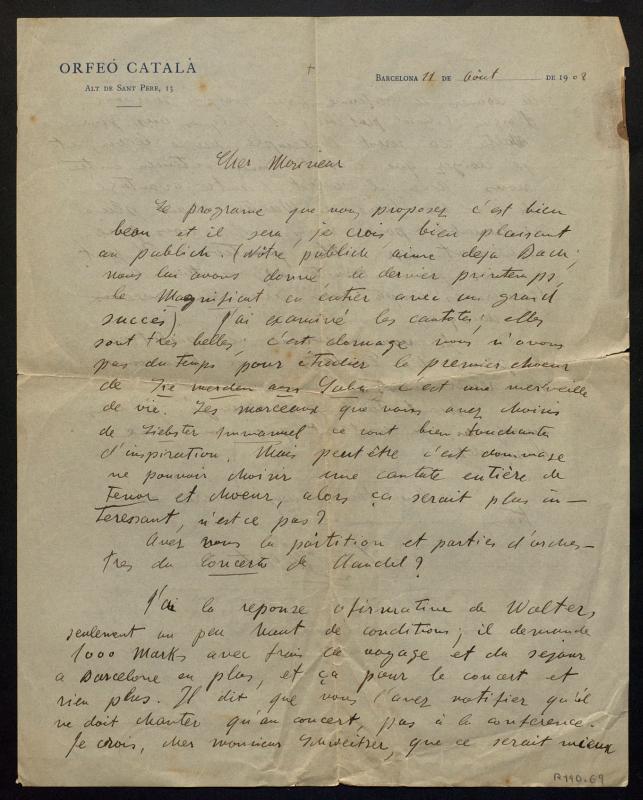 ORFEÓ CATALÀ
ALT DE SANT PERE, 13
BARCELONA 11 DE août DE 1908
Cher Monsieur
Le programe que vous proposez c'est bien
beau et il sera, je crois bien plaisant
au publich. (Nôtre publich aime deja Bach;
nous lui avons donné le dernier printemps,
le Magnificat en entier avec un grand
succés) J'ai examiné les cantates; elles
sont très belles; c'est domage nous n'avons
pas du temps pour étudier le premier choeur
de Sie werden aus Saba: c'est une merveille
de vie. Les morceaux que vous avez choisis
de Liebster Immanuel ce sont bien touchants
d'inspiration. Mais peut être c'est dommage
ne pouvoir choisir une cantate entière de
Tenor et choeur, alors ça serait plus in-
teressant, n'est ce pas?
Avez vous la partition et parties d'orches-
tres du Concerto de Haendel?
J'ai la reponse afirmative de Walter,
seulement un peu haut de conditions; il demande
1000 Marks avec frais de voyage et du sejour
a Barcelone en plus, et ça pour le concert et
rien plus. Il dit que vous l'avez notifier qu'il
ne doit chanter qu'au concert, pas à la conférence.
Je crois, cher monsieur Schweitzer, que ce serait mieux
R140.69